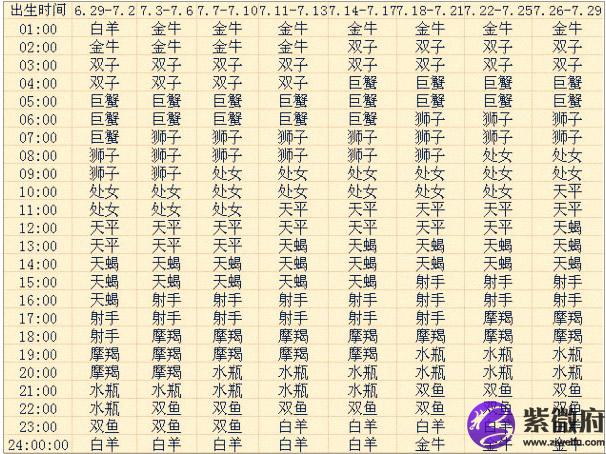 出生时间 6.29-7.2 7.3-7.6 7.7-7.10 7.11-7.13 7.14-7.17 7.18-7.21 7.22-7.25 7.26-7.29
01:00 白羊 金牛 金牛 金牛 金牛 金牛 金牛 金牛
02:00 金牛 金牛 金牛 金牛 双子 双子 双子 双子
03:00 双子 双子 双子 双子 双子 双子 双子 双子
04:00 双子 双子 双子 双子 巨蟹 巨蟹 巨蟹 巨蟹
05:00 巨蟹 巨蟹 巨蟹 巨蟹 巨蟹 巨蟹 巨蟹 巨蟹
06:00 巨蟹 巨蟹 巨蟹 巨蟹 巨蟹 狮子 狮子 狮子
07:00 巨蟹 狮子 狮子 狮子 狮子 狮子 狮子 狮子
08:00 狮子 狮子 狮子 狮子 狮子 狮子 处女 处女
09:00 狮子 狮子 处女 处女 处女 处女 处女 处女
10:00 处女 处女 处女 处女 处女 处女 处女 天平
11:00 处女 处女 处女 天平 天平 天平 天平 天平
12:00 天平 天平 天平 天平 天平 天平 天平 天蝎
13:00 天平 天平 天平 天平 天蝎 天蝎 天蝎 天蝎
14:00 天蝎 天蝎 天蝎 天蝎 天蝎 天蝎 天蝎 天蝎
15:00 天蝎 天蝎 天蝎 天蝎 天蝎 射手 射手 射手
16:00 天蝎 射手 射手 射手 射手 射手 射手 射手
17:00 射手 射手 射手 射手 射手 射手 摩羯 摩羯
18:00 射手 摩羯 摩羯 摩羯 摩羯 摩羯 摩羯 摩羯
19:00 摩羯 摩羯 摩羯 摩羯 摩羯 水瓶 水瓶 水瓶
20:00 摩羯 摩羯 水瓶 水瓶 水瓶 水瓶 水瓶 水瓶
21:00 水瓶 水瓶 水瓶 水瓶 水瓶 双鱼 双鱼 双鱼
22:00 水瓶 双鱼 双鱼 双鱼 双鱼 双鱼 双鱼 双鱼
23:00 双鱼 双鱼 双鱼 白羊 白羊 白羊 白羊
24:00:00 白羊 白羊 白羊 白羊 白羊 金牛 金牛 金牛
紫微府
www.ziweifu.com